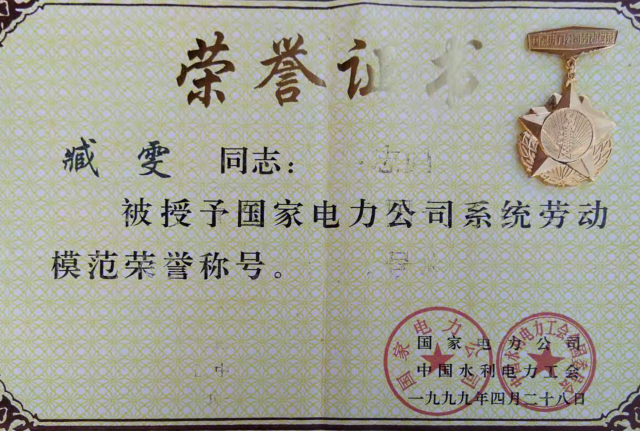 荣誉证书
臧雯 同志：
被授予国家电力公司系统劳动
模范荣誉称号。
国家电力公司
中国水利电力工会
一九九九年四月二十八日
国家电力公司